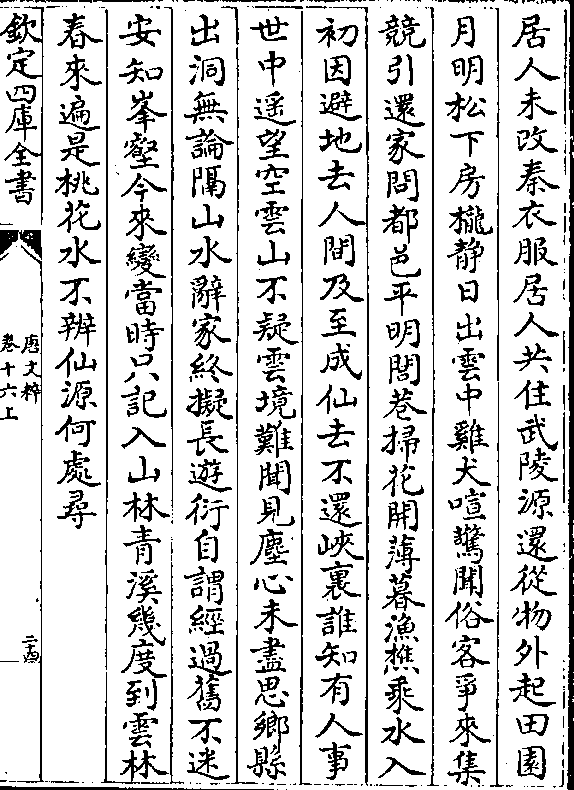 居人未改秦衣服居人共住武陵源還從物外起田園
月明松下房櫳靜日出雲中雞犬喧驚聞俗客爭來集
競引還家問都邑平明閭巷掃花開薄暮漁樵乘水入
初因避地去人間及至成仙去不還峽裏誰知有人事
世中遥望空雲山不疑雲境難聞見塵心未盡思鄉縣
出洞無論隔山水辭家終擬長遊衍自謂經過舊不迷
安知峯壑今來變當時只記入山林青溪幾度到雲林
春來遍是桃花水不辨仙源何處尋
欽定四庫全書
唐文粹
卷十六上
二十四